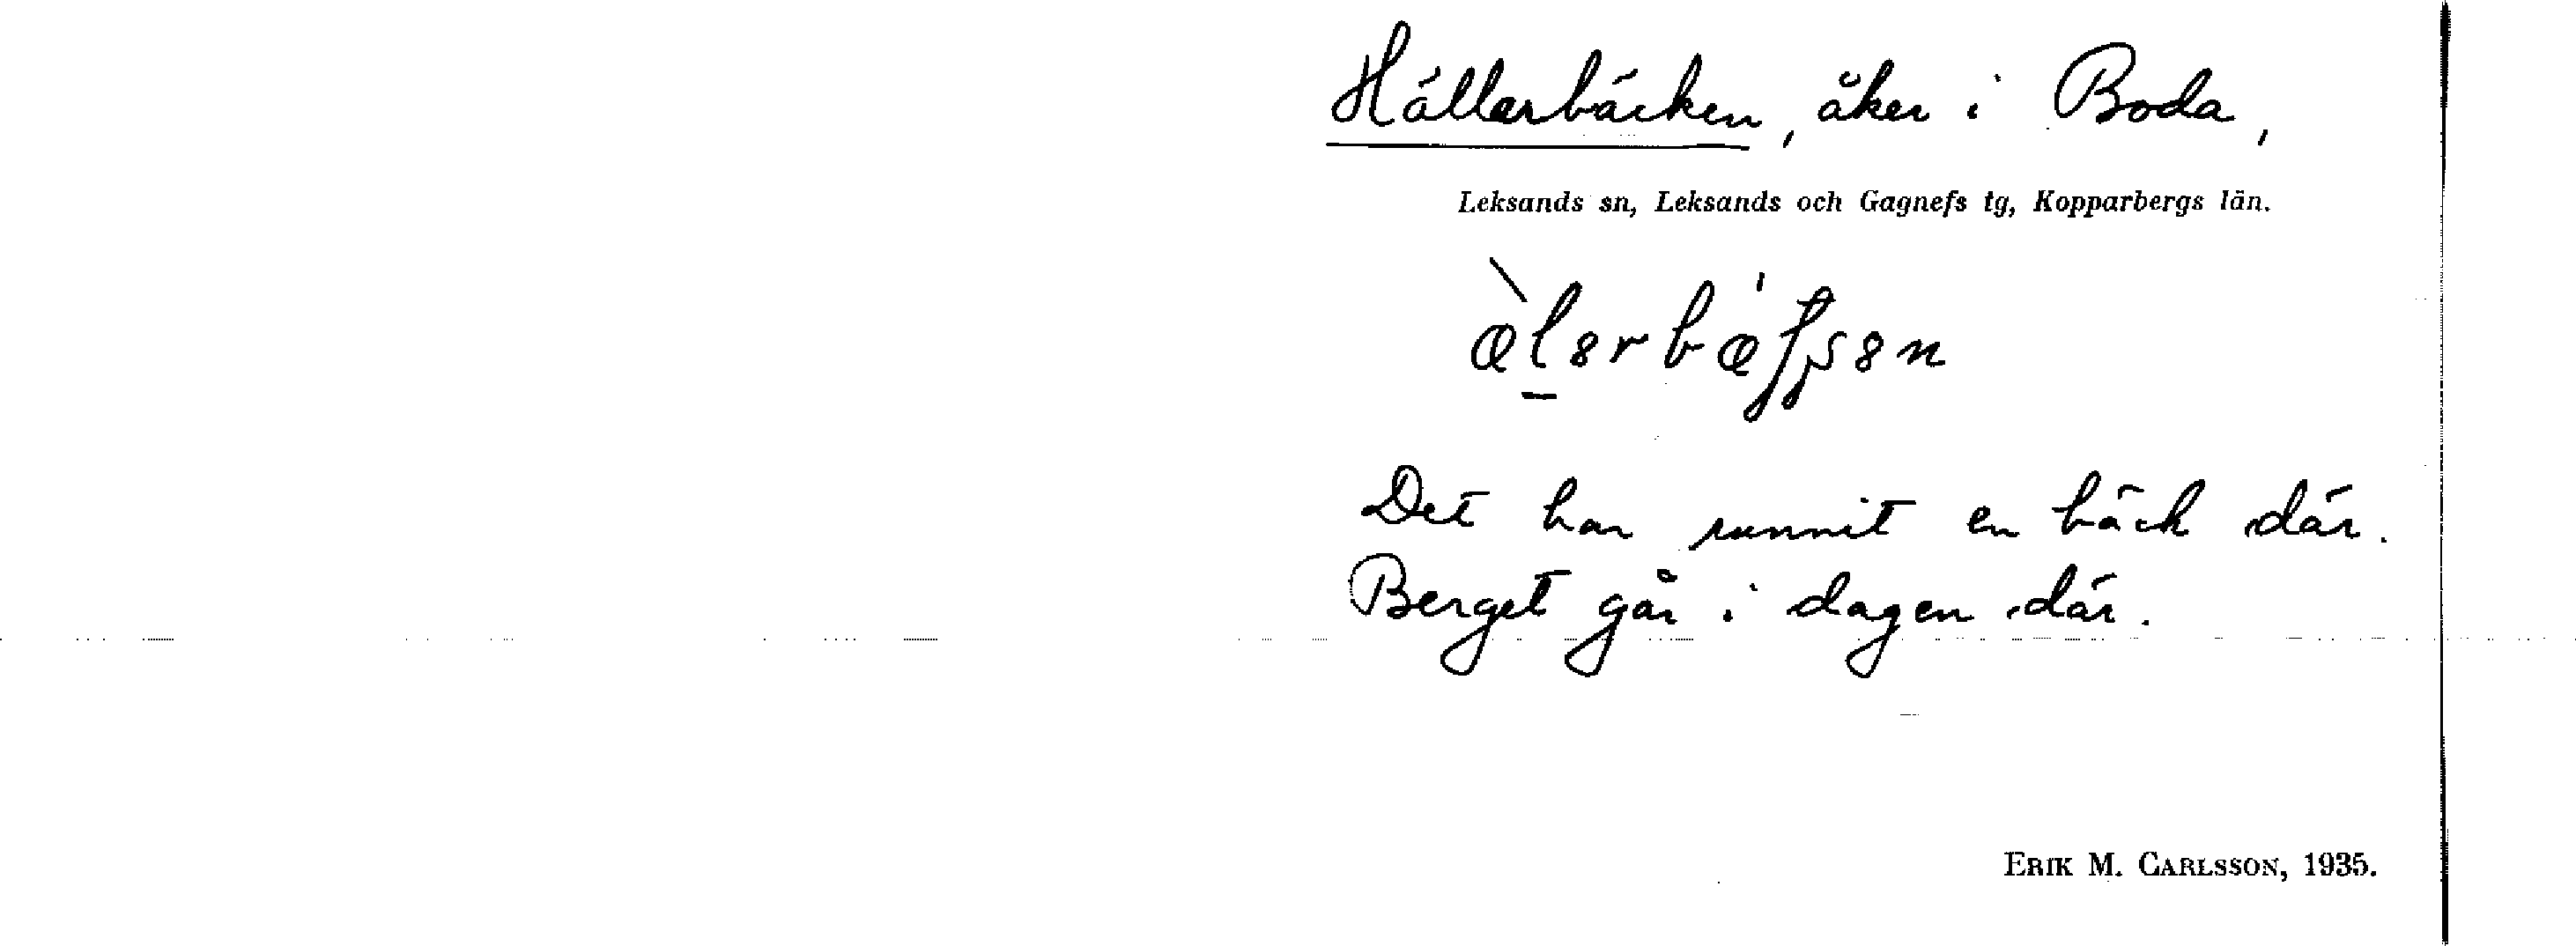 Hällerbäcken, åker i Boda,
Leksands sn, Leksands och Gagnefs tg, Kopparbergs län.
Det har runnit en bäck där.
Berget går i dagen där.
ERIK M. CARLSSON, 1935.